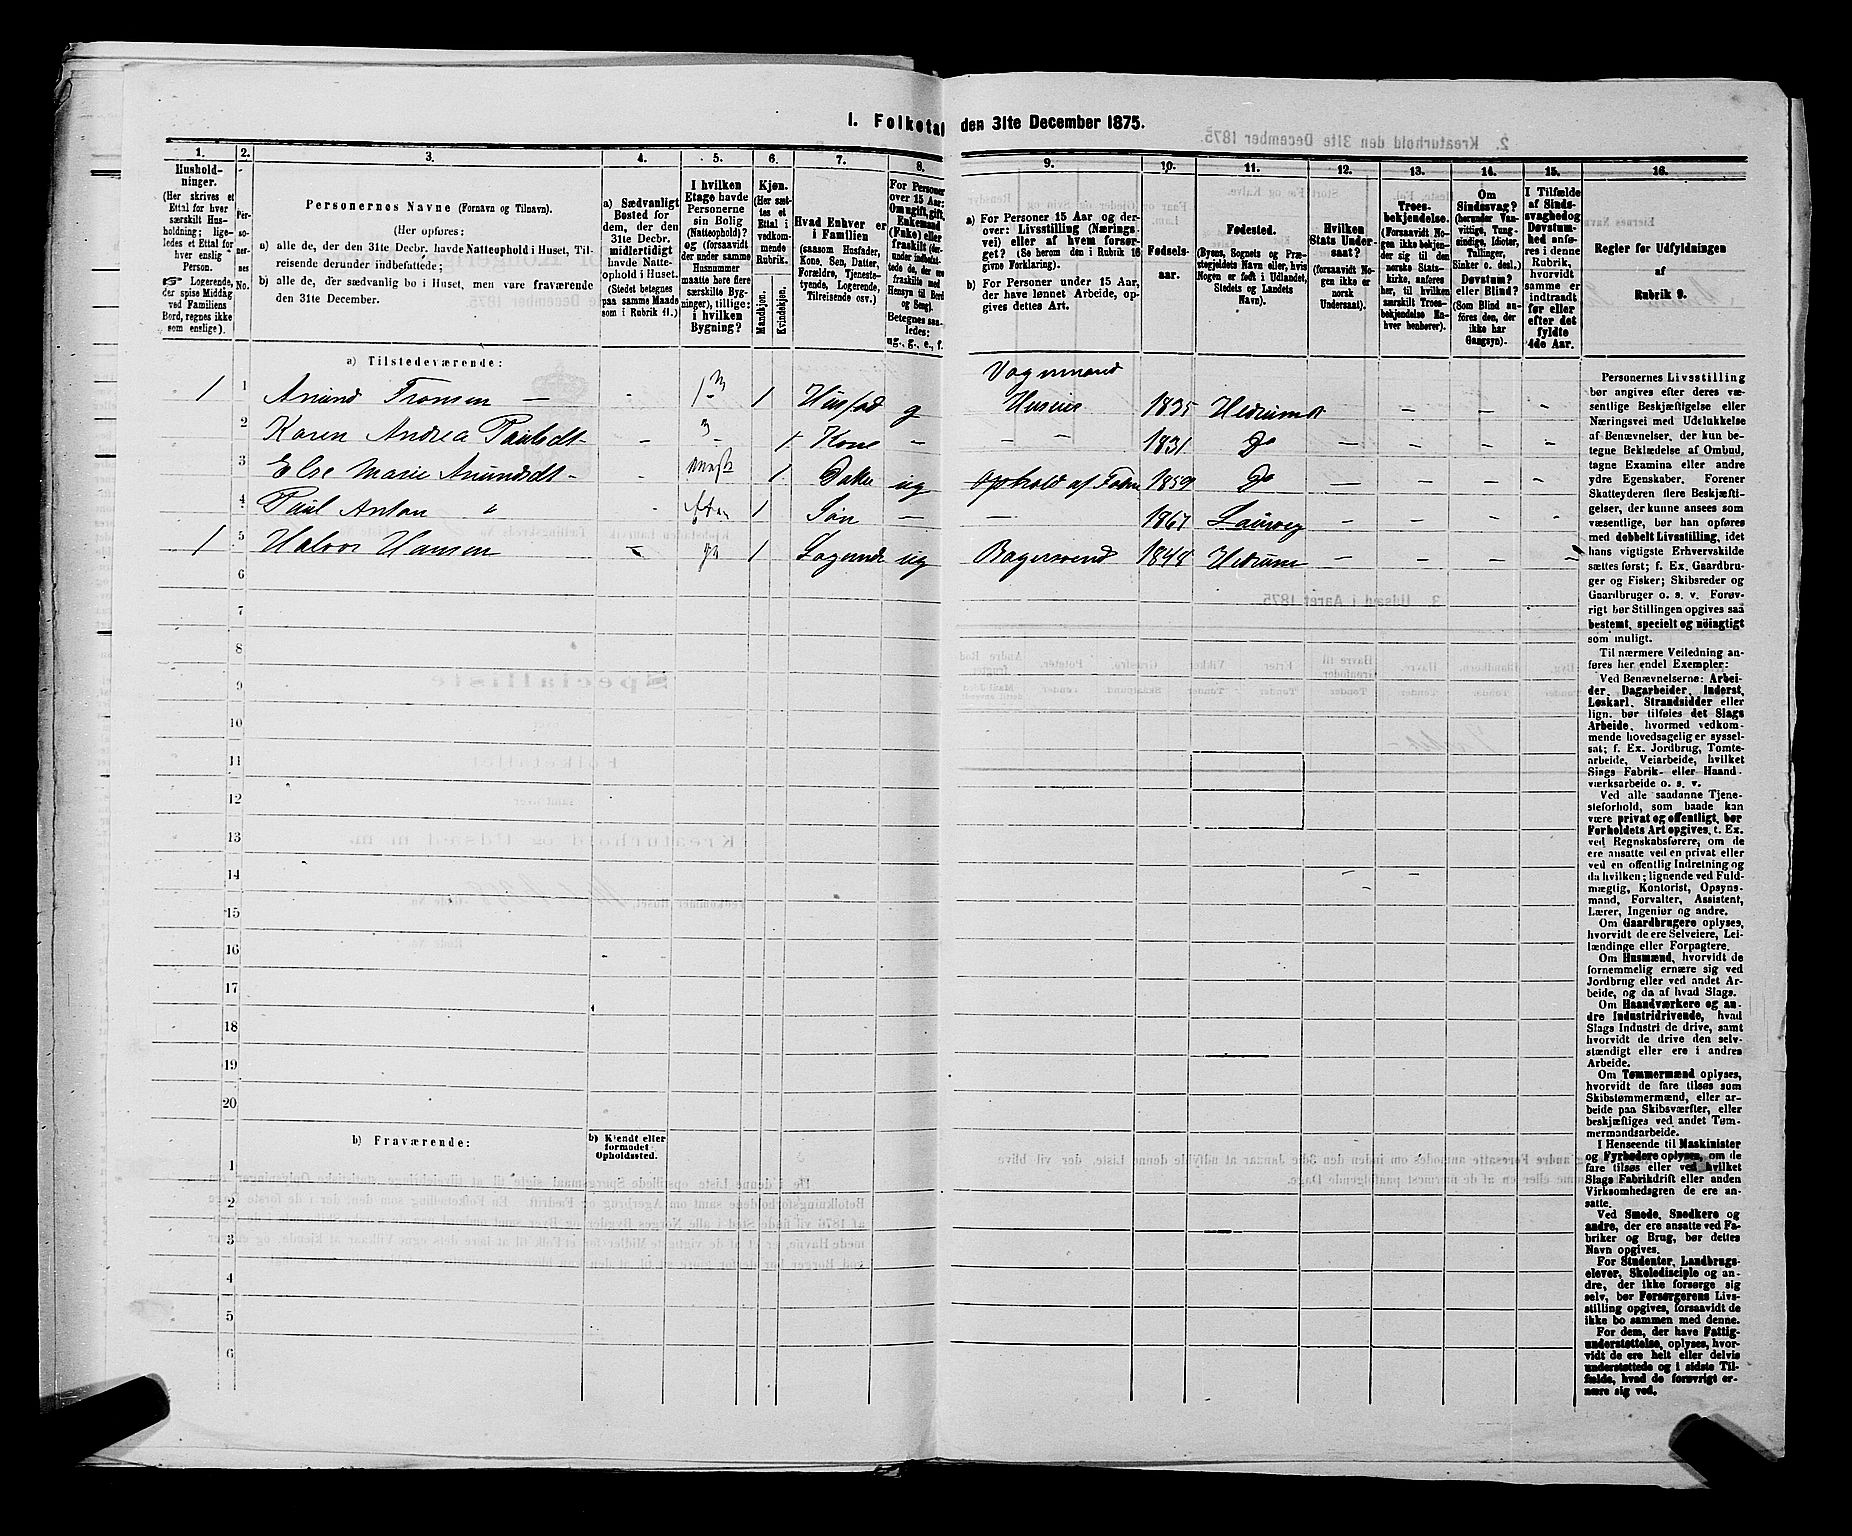 1. Folketal den 31te December 1875.
1. 2. 3. 4. 5. 6. 7. 8. 9. 10. 11. 12. 13. 14. 15. 16.
Hushold-
ninger.
(Her skrives et
Ettal for hver
særskilt Hus-
holdning; lige-
ledes et Ettal for
hver enslig
Person.
Logerende,
der spise Middag
ved Familiens
Bord, regnes ikke
som enslige).
Per-
so-
ner-
nes
No.
Personernes Navne (Fornavn og Tilnavn).
(Her opføres:
a) alle de, der den 31te Decbr. havde Natteophold i Huset, Til-
reisende derunder indbefattede;
b) alle de, der sædvanlig bo i Huset, men vare fraværende
den 31te December.
a) Sædvanligt
Bosted for
dem, der den
31te Decbr.
midlertidigt
havde Natte-
ophold i Huset.
(Stedet betegnes
paa samme Maade
som i Rubrik 11.)
I hvilken
Etage havde
Personerne
sin Bolig
(Natteophold)?
og (forsaavidt
der under samme
Husnummer
maatte høre flere
særskilte Byg-
ninger), tillige:
i hvilken
Bygning?
Kjøn.
(Her sæt-
tes et
Ettal i
vedkom-
mende
Rubrik.
Mandkjøn.
Kvindekjøn.
Hvad Enhver er
i Familien
(saasom Husfader,
Kone, Søn, Datter,
Forældre, Tjeneste-
tyende, Logerende,
Tilreisende osv.)
For Personer
over 15 Aar:
Om ugift, gift,
Enkemand
(Enke) eller
fraskilt
Betegnes saa-
ledes:
ug., g., e., f.
a) For Personer 15 Aar og der-
over: Livsstilling (Nærings-
vei) eller af hvem forsør-
get? (Se herom den i Rubrik 16
givne Forklaring).
b) For Personer under 15 Aar,
der have lønnet Arbeide, op-
gives dettes Art.
Fødsels-
aar.
Fødested.
(Byens, Sognets og Præ-
stegjeldets Navn eller, hvis
Nogen er født i Udlandet,
Stedets og Landets
Navn).
Hvilken
Stats Under-
saat?
(forsaavidt No-
gen ikke er
norsk
Undersaat).
Troes-
bekjendelse.
(Forsaavidt No-
gen ikke bekjen-
der sig til den
norske Stats-
kirke, anføres
her, til hvilken
særskilt Troes-
bekjendelse En-
hver henhører).
Om
Sindssvag?
(herunder Van-
vittige, Tung-
sindige, Idioter,
Tullinger,
Sinker o. desl.)
Døvstum?
eller Blind?
(Som Blind an-
føres den, der
ikke har
Gangsyn).
I Tilfælde
af Sinds-
svaghed og
Døvstum-
hed anfø-
res i denne
Rubrik,
hvorvidt
samme er
indtraadt
før eller
efter det
fyldte
4de Aar.
Regler for Udfyldningen
af
Rubrik 9.
a) Tilstedeværende:
Vogrmand
1 1 Anund Tronsen — 1 Husfad g Huseier 1835 Hedrum
2 Karen Andrea Paulsdt — 1 Kone — 1831 Do
3 Else Marie Anundsdt — 1 Datter ug Ophold af Fader 1859 Do
4 Paul Anton " 1 Søn — 1867 Laurvig
1 5 Halvor Hansen — 1 Logerende ug Bagersvend 1848 Hedrum
6
7
8
9
10
11
12
13
14
15
16
17
18
19
20
b) Fraværende:
b) Kjendt eller
formodet
Opholdssted.
1
2
3
4
5
6
Personernes Livsstilling
bør angives efter deres væ-
sentlige Beskjæftigelse eller
Næringsvei med Udelukkelse
af Benævnelser, der kun be-
tegne Beklædelse af Ombud,
tagne Examina eller andre
ydre Egenskaber. Forener
Skatteyderen flere Beskjæfti-
gelser, der kunne ansees som
væsentlige, bør han opføres
med dobbelt Livsstilling, idet
hans vigtigste Erhvervskilde
sættes først; f. Ex. Gaardbru-
ger og Fisker; Skibsreder og
Gaardbruger o. s. v. Forøv-
rigt bør Stillingen opgives saa
bestemt, specielt og nöiagtigt
som muligt.
Til nærmere Veiledning an-
føres her endel Exempler:
Ved Benævnelserne: Arbei-
der, Dagarbeider, Inderst,
Løskarl, Strandsidder eller
lign. bør tilføles det Slags
Arbeide, hvormed vedkom-
mende hovedsagelig er syssel-
sat; f. Ex. Jordbrug, Tomte-
arbeide, Veiarbeide, hvilket
Slags Fabrik- eller Haand-
værksarbeide o. s. v.
Ved alle saadanne Tjene-
steforhold, som baade kan
være privat og offentligt, bør
Forholdets Art opgives, t. Ex.
ved Regnskabsførere, om de
ere ansatte ved en privat eller
ved en offentlig Indretning og
da hvilken; lignende ved Fuld-
mægtig, Kontorist, Opsyns-
mand, Forvalter, Assistent,
Lærer, Ingeniør og andre.
Om Gaardbrugere oplyses,
hvorvidt de ere Selveiere, Lei-
lændinge eller Forpagtere.
Om Husmænd, hvorvidt de
fornemmelig ernære sig ved
Jordbrug eller ved andet Ar-
beide, og da af hvad Slags.
Om Haandværkere og an-
dre Industridrivende, hvad
Slags Industri de drive, samt
hvorvidt de drive den selv-
stændigt eller ere i andres
Arbeide.
Om Tømmermænd oplyses,
hvorvidt de fare tilsøs som
Skibstømmermænd, eller ar-
beide paa Skibsværfter, eller
beskjæftiges ved andet Tøm-
mermandsarbeide.
I Henseende til Maskinister
og Fyrbødere oplyses, om de
fare tilsøs eller ved hvilket
Slags Fabrikdrift eller anden
Virksomhedsgren de ere an-
satte.
Ved Smede, Snedkere og
andre, der ere ansatte ved Fa-
briker og Brug, bør dettes
Navn opgives.
For Studenter, Landbrugs-
elever, Skoledisciple og an-
dre, der ikke forsørge sig
selv, bør Forsørgerens Livs-
stilling opgives, forsaavidt de
ikke bo sammen med denne.
For dem, der have Fattig-
understøttelse, oplyses, hvor-
vidt de ere helt eller delvis
understøttede og i sidste Til-
fælde, hvad de forøvrigt er-
nære sig ved.